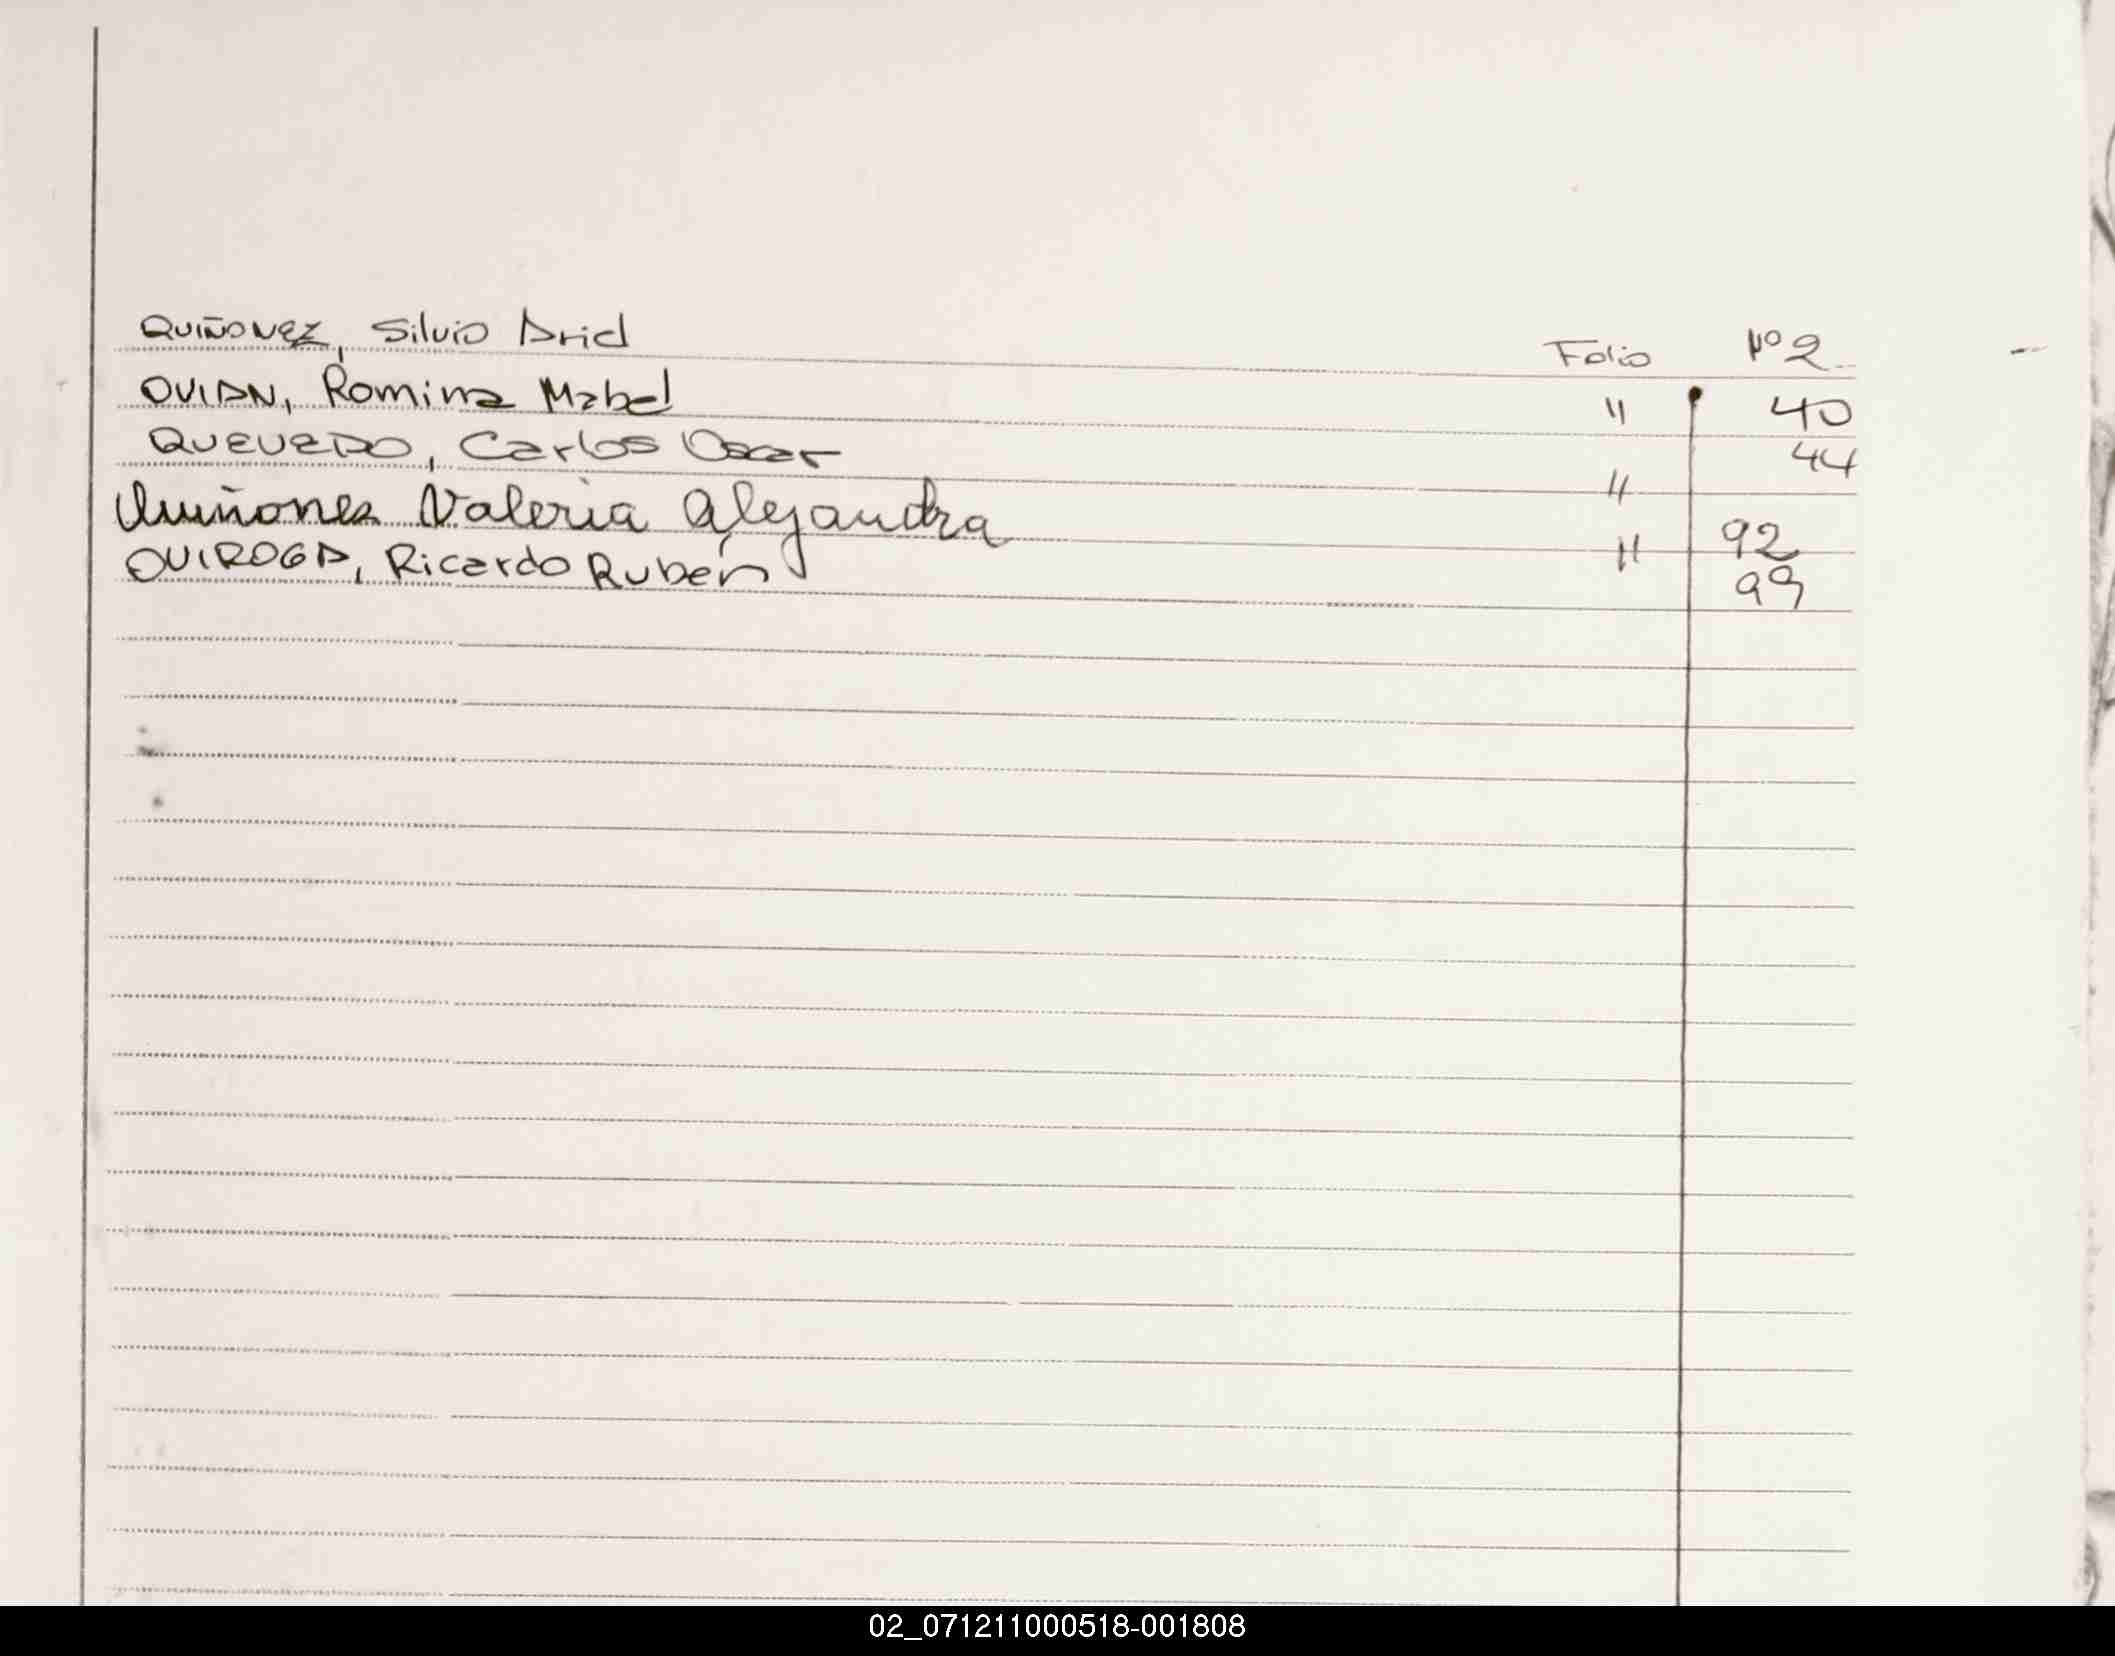 QUIÑONEZ, Silvio Ariel Folio Nº 2
QUIAN, Romina Mabel " 40
QUEVEDO, Carlos Oscar " 44
Quiñones Valeria Alejandra " 92
QUIROGA, Ricardo Rubén 99
02_071211000518-001808